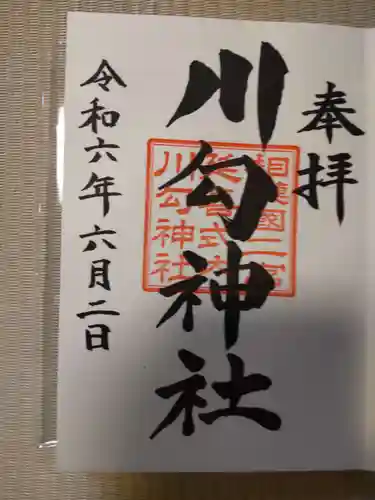 奉拝
川勾神社
相模國二宮
延喜式内
川勾神社
令和六年六月二日